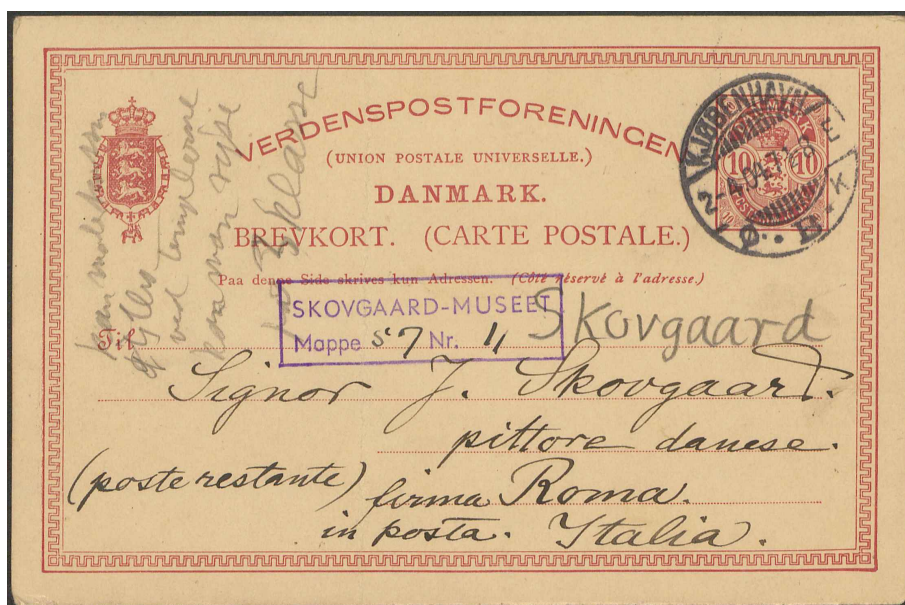 VERDENSPOSTFORENINGEN
(UNION POSTALE UNIVERSELLE.)
DANMARK.
BREVKORT. (CARTE POSTALE.)
Paa denne Side skrives kun Adressen. (Côté réservé à l'adresse.)
KJØBENHAVN
2-4.04.
Ø.B.
DANMARK
10 10
SKOVGAARD-MUSEET
Mappe 57 Nr. 4
Skovgaard
Til
Signor J. Skovgaard.
pittore danese.
(poste restante) firma Roma.
in posta. Italia.
kan
fyldes
ved templerne
kan man
3 klasse